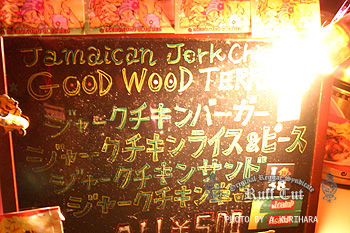 Jamaican Jerk Ch
GOOD WOOD TERR
ジャークチキンバーガー
ジャークチキンライス&ピース
ジャークチキンサンド
ジャークチキン
ALL ¥500
Original Reggae Syndicate
Ruff Cut
PHOTO BY A.KURIHARA